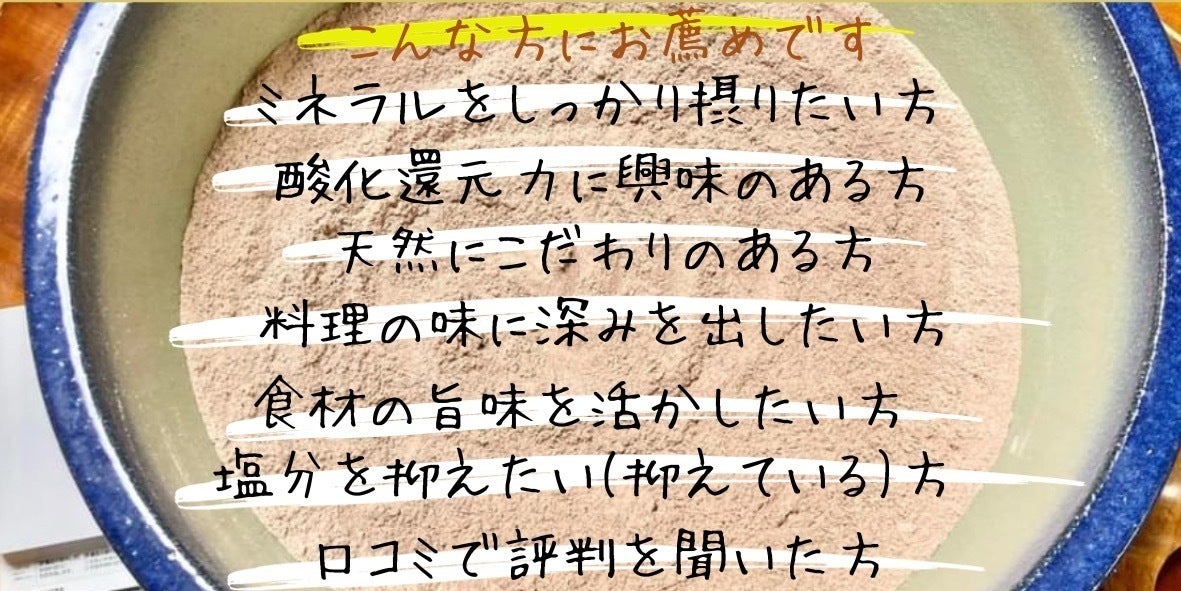 こんな方にお薦めです
ミネラルをしっかり摂りたい方
酸化還元力に興味のある方
天然にこだわりのある方
料理の味に深みを出したい方
食材の旨味を活かしたい方
塩分を抑えたい(抑えている)方
口コミで評判を聞いた方